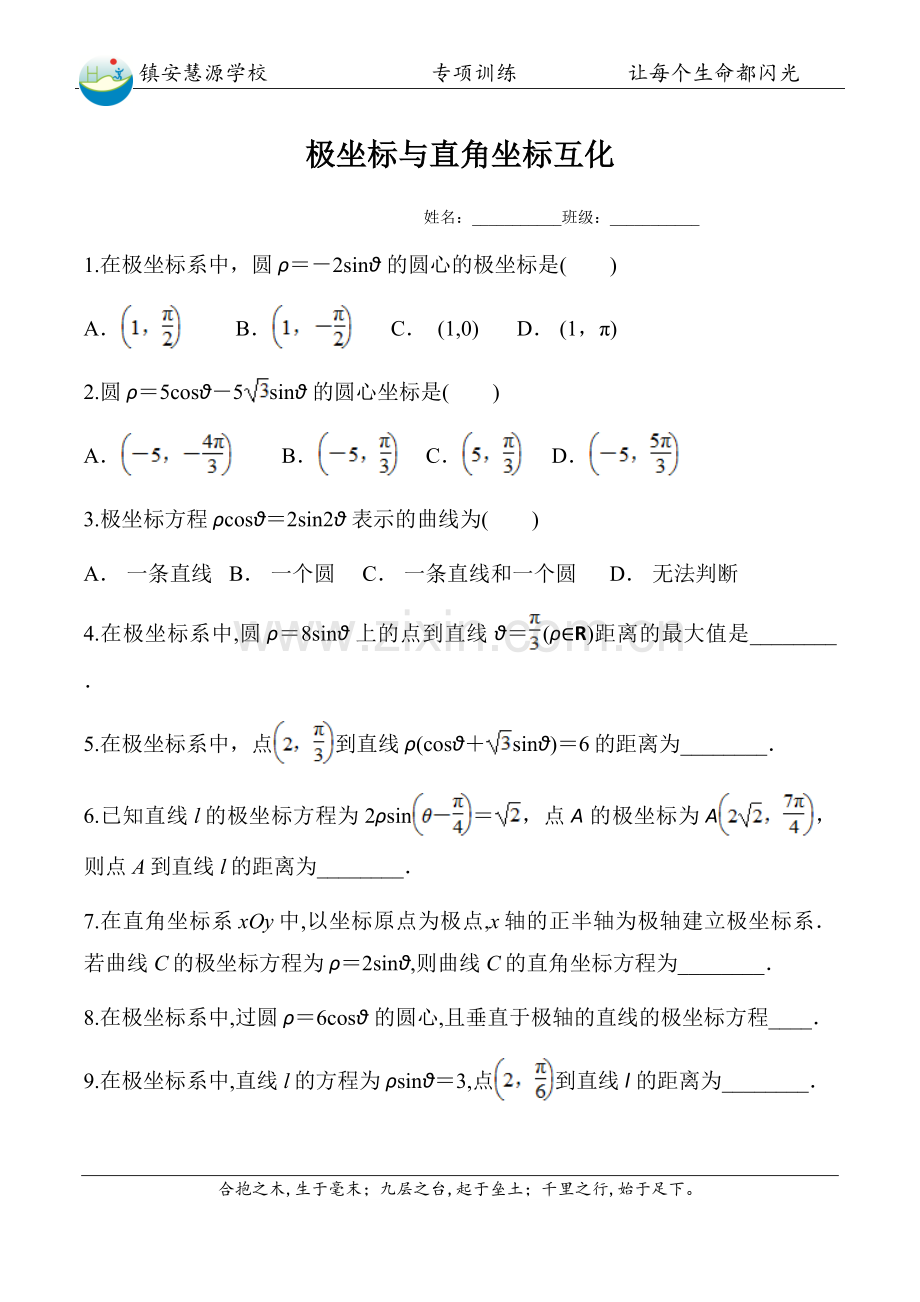 镇安慧源学校 专项训练 让每个生命都闪光
极坐标与直角坐标互化
姓名：__________班级：__________
1.在极坐标系中，圆ρ＝－2sinθ的圆心的极坐标是(　　)
A．(1，π/2)　B．(1，－π/2)　C． (1,0)　D． (1，π)
2.圆ρ＝5cosθ－5√3sinθ的圆心坐标是(　　)
A．(－5，－4π/3)　B．(－5，π/3)　C．(5，π/3)　D．(－5，5π/3)
3.极坐标方程ρcosθ＝2sin2θ表示的曲线为(　　)
A． 一条直线　B． 一个圆　C． 一条直线和一个圆　D． 无法判断
4.在极坐标系中,圆ρ＝8sinθ上的点到直线θ＝π/3(ρ∈R)距离的最大值是________
．
5.在极坐标系中，点(2，π/3)到直线ρ(cosθ＋√3sinθ)＝6的距离为________．
6.已知直线l的极坐标方程为2ρsin(θ－π/4)＝√2，点A的极坐标为A(2√2，7π/4)，
则点A到直线l的距离为________．
7.在直角坐标系xOy中,以坐标原点为极点,x轴的正半轴为极轴建立极坐标系．
若曲线C的极坐标方程为ρ＝2sinθ,则曲线C的直角坐标方程为________．
8.在极坐标系中,过圆ρ＝6cosθ的圆心,且垂直于极轴的直线的极坐标方程____．
9.在极坐标系中,直线l的方程为ρsinθ＝3,点(2，π/6)到直线l的距离为________．
合抱之木,生于毫末；九层之台,起于垒土；千里之行,始于足下。
www.zixin.com.cn